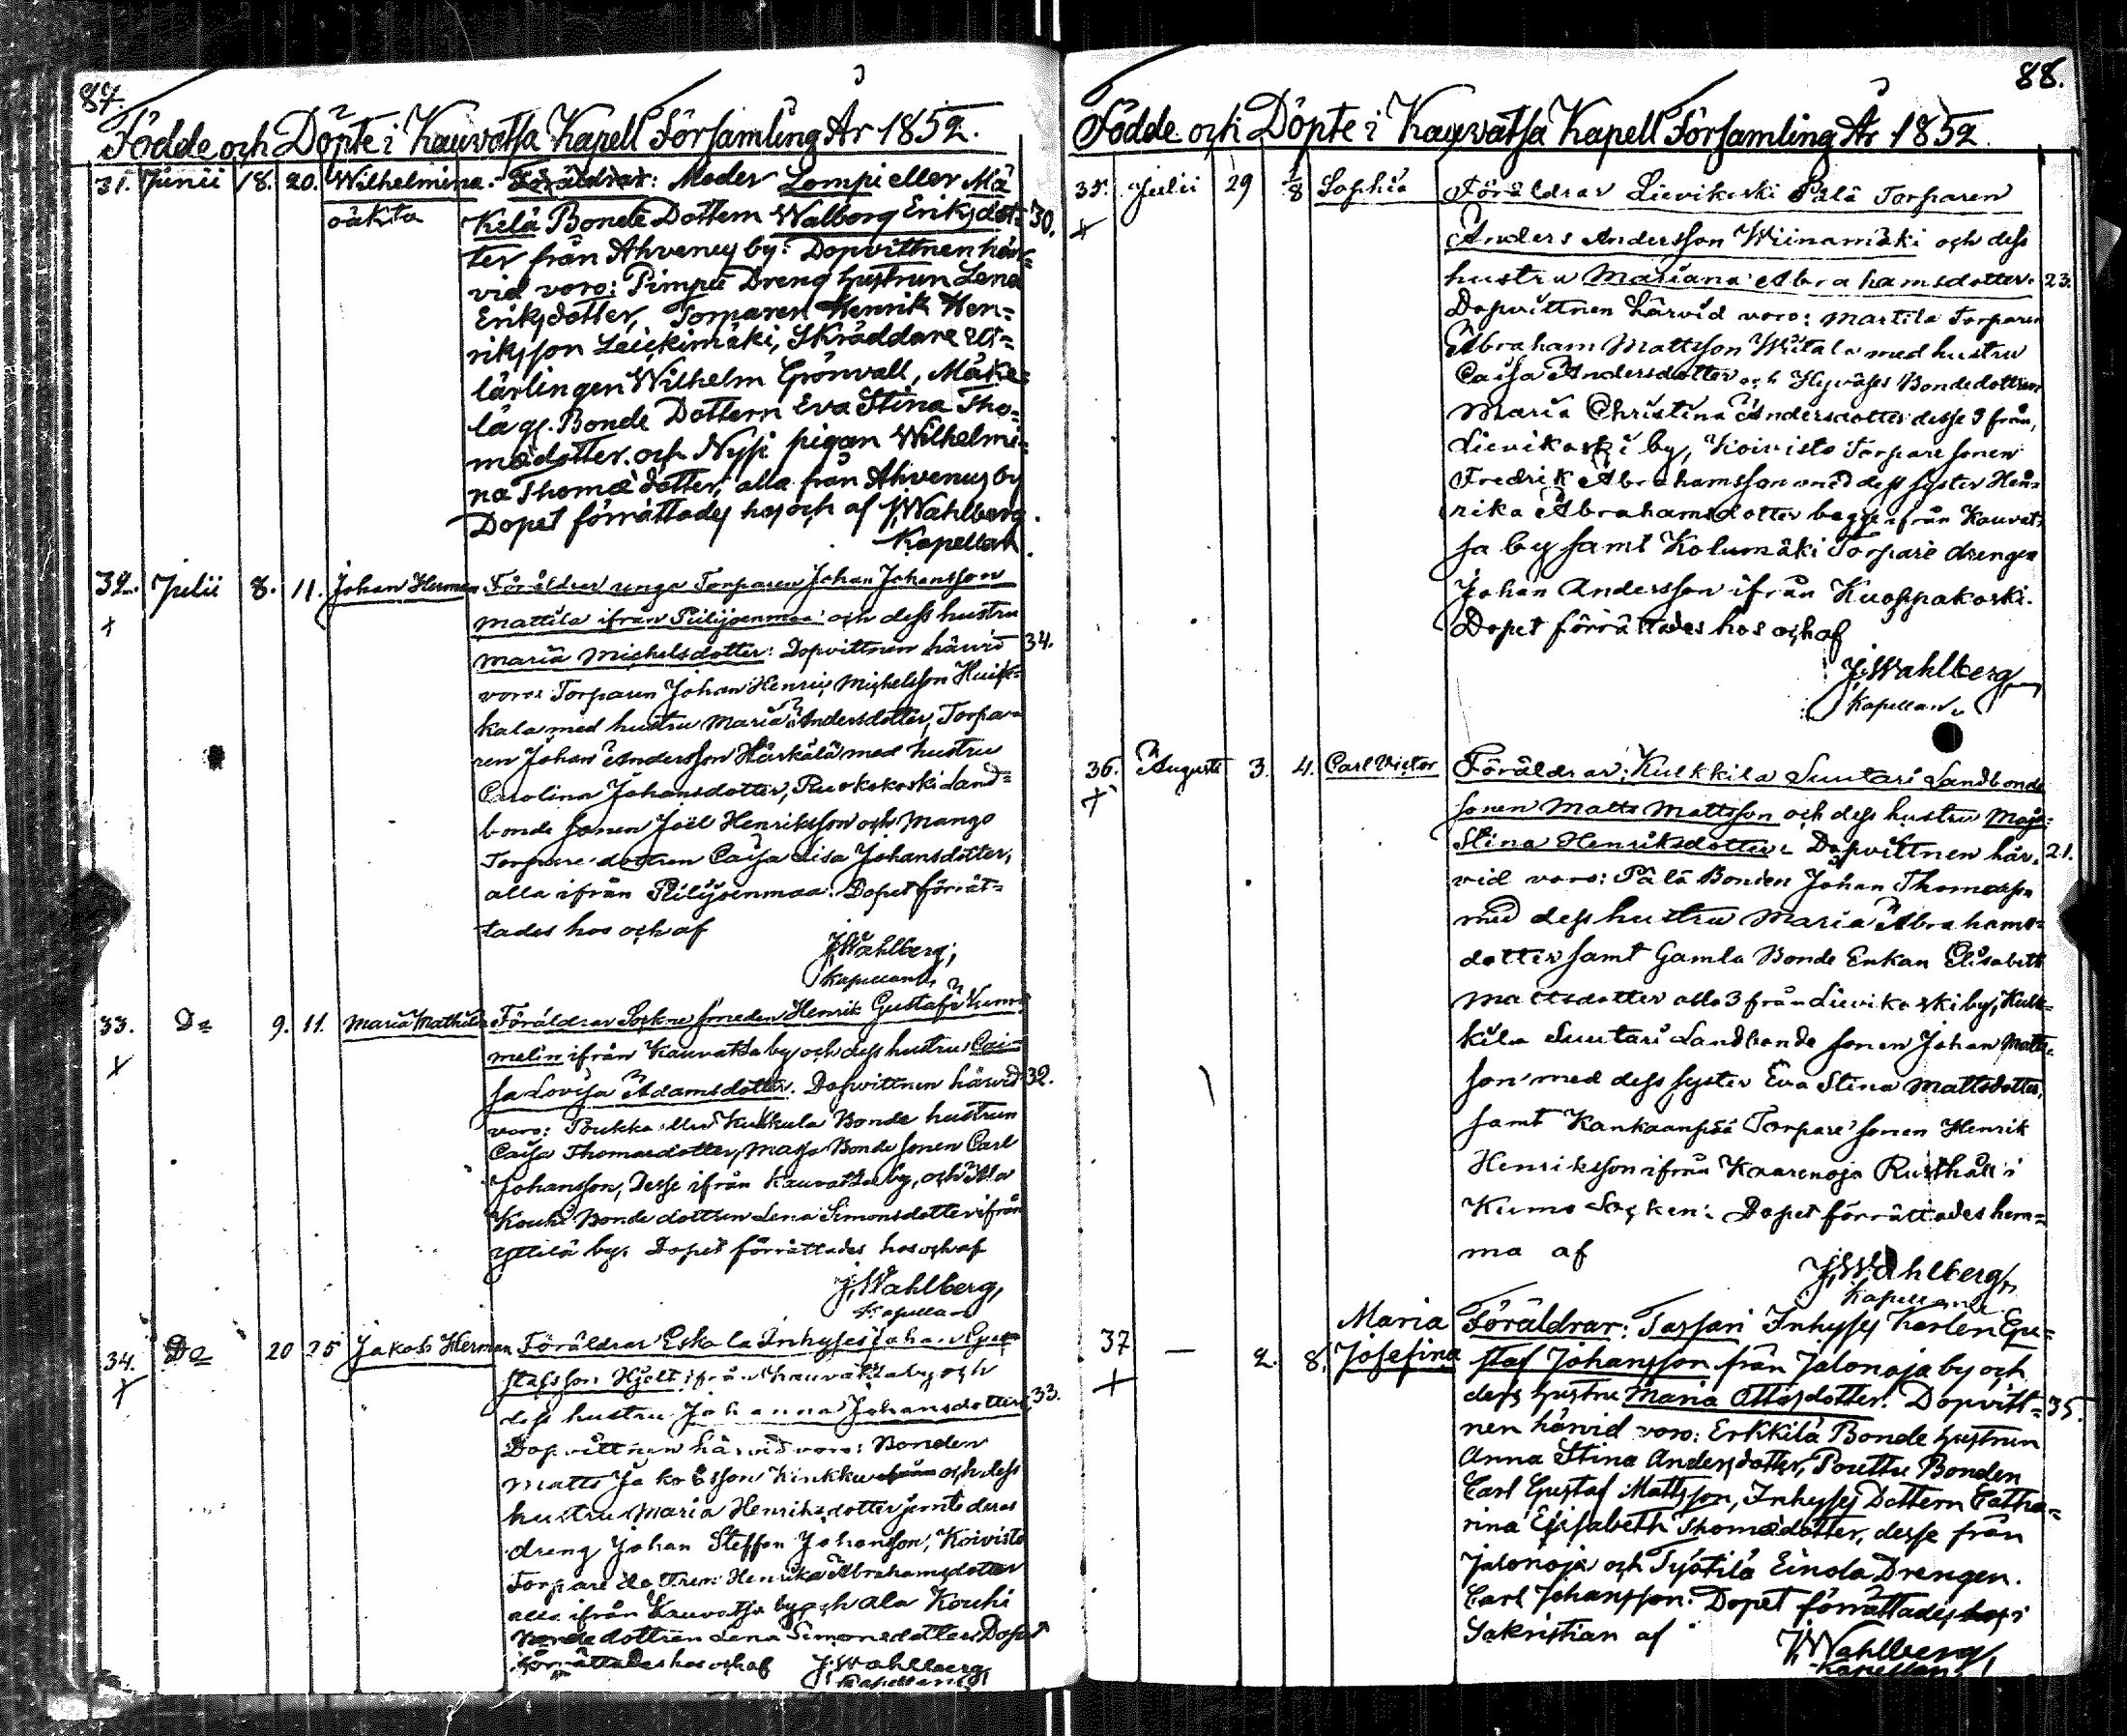 87.
Födde och Döpte i Kauvatsa Kapell Församling År 1852.
31. Junii 18. 20. Wilhelmina. Föräldrar: Moder Lompi eller Mä
oäkta Kelä Bonde Dottern Walborg Eriksdot= 30.
ter från Ahvenus by: Dopvittnen här=
vid voro: Pimpu Dreng hustrun Lena
Eriksdotter, Torparen Henrik Hen=
riksson Leickimäki, Skräddare
lärlingen Wilhelm Grönvall, Mäke=
lä gl. Bonde Dottern Eva Stina Tho=
mædotter och Nyssi pigan Wilhelmi=
na Thomædotter, alla från Ahvenus by
Dopet förrättades hos och af J. Wahlberg.
Kapellan.
32. Julii 8. 11. Johan Herman Föräldrar unga Torparen Johan Johansson
+ Mattila ifrån Piilijoenmaa och dess hustru
Maria Michelsdotter: Dopvittnen härvid 34.
voro: Torparen Johan Henric Michelsson
kala med hustru Maria Andersdotter, Torpa=
ren Johan Andersson Härkälä med hustru
Carolina Johansdotter, Ruokokoski Land=
bonde Sonen Joël Henriksson och Mango
Torpare dottren Caisa Lisa Johansdotter,
alla ifrån Piilijoenmaa: Dopet förrät=
tades hos och af
J. Wahlberg,
Kapellan.
33. Do 9. 11. Maria Mathilda Föräldrar Sockne smeden Henrik Gustaf Kum=
+ melin ifrån Kauvatsa by och dess hustru Cai=
sa Lovisa Adamsdotter. Dopvittnen härvid 32.
voro: Poukka eller Kukkula Bonde hustrun
Caisa Thomasdotter, Bonde sonen Carl
Johansson, Desse ifrån Kauvatsa by, och Ala
Kouhi Bonde dottren Lena Simonsdotter ifrån
Yttilä by. Dopet förrättades hos och af
J. Wahlberg,
Kapellan
34. Do 20 25 Jakob Herman Föräldrar Eskola Inhyses Johan Gus=
+ stafsson Hjelt ifrån Kauvatsa by och
dess hustru Johanna Johansdotter 33.
Dopvittnen härvid voro: Bonden
Matts Jakobsson Kinkku och dess
hustru Maria Henriksdotter jemte deras
dreng Johan Steffan Johansson, Koivisto
Torpare dottren Henrika Abrahamsdotter
alla ifrån Kauvatsa by och Ala Kouhi
Bonde dottren Lena Simonsdotter. Dopet
förrättades hos och af J. Wahlberg,
Kapellan
88.
Födde och Döpte i Kauvatsa Kapell Församling År 1852.
35. Julii 29 1/8 Sophia Föräldrar Lievikoski Pälä Torparen
+ Anders Andersson Wiinamäki och dess
hustru Mariana Abrahamsdotter. 23.
Dopvittnen härvid voro: Martila Torparen
Abraham Mattsson Wiitala med hustru
Caisa Andersdotter och Hyväses Bondedottren
Maria Christina Andersdotter desse 3 från,
Lievikoski by, Koivisto Torpare sonen
Fredrik Abrahamsson med dess syster Hen=
rika Abrahamsdotter begge ifrån Kauvat=
sa by samt Kolumäki Torpare drengen
Johan Andersson ifrån Kuoppakoski.
Dopet förrättades hos och af
J. Wahlberg
Kapellan.
36. Augusti 3. 4. Carl Victor Föräldrar: Kulkkila Suutari Landbonde
+ Sonen Matts Mattsson och dess hustru Maja
Stina Henriksdotter: Dopvittnen här= 21.
vid voro: Pälä Bonden Johan Thomasson
med dess hustru Maria Abrahams=
dotter samt Gamla Bonde Enkan Elisabeth
Mattsdotter alla 3 från Lievikoski by, Kulk=
kila Suutari Landbonde sonen Johan Matts=
son med dess syster Eva Stina Mattsdotter,
samt Kankaanpää Torpare sonen Henrik
Henriksson ifrån Kaarenoja Rusthåll i
Kumo Socken: Dopet förrättades hem=
ma af
J. Wahlberg,
Kapellan
37 — 2. 8. Maria Föräldrar: Tassari Inhyses Karlen Gu=
+ Josefina staf Johansson från Jalonoja by och
dess hustru Maria Ottosdotter. Dopvitt= 35.
nen härvid voro: Erkkilä Bonde hustrun
Anna Stina Andersdotter, Pouttu Bonden
Carl Gustaf Mattsson, Inhyses Dottern Catha=
rina Elisabeth Thomædotter, desse från
Jalonoja och Työtilä Einola Drengen.
Carl Johansson: Dopet förrättades hos i
Sakristian af
J. Wahlberg,
Kapellan